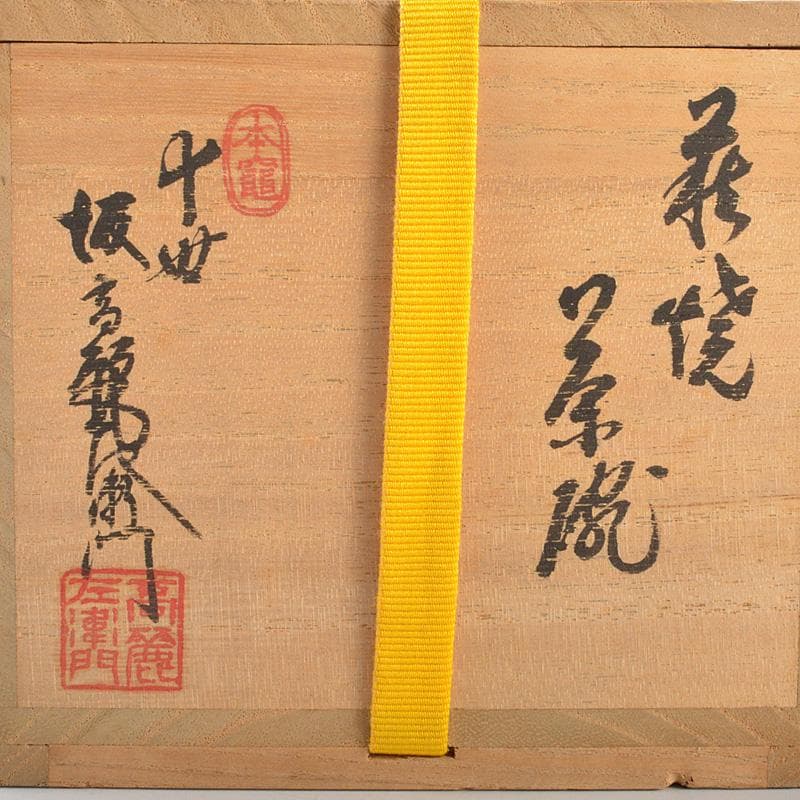 萩焼
茶碗
本竈
十世
坂高麗左衛門
高麗
左衛門